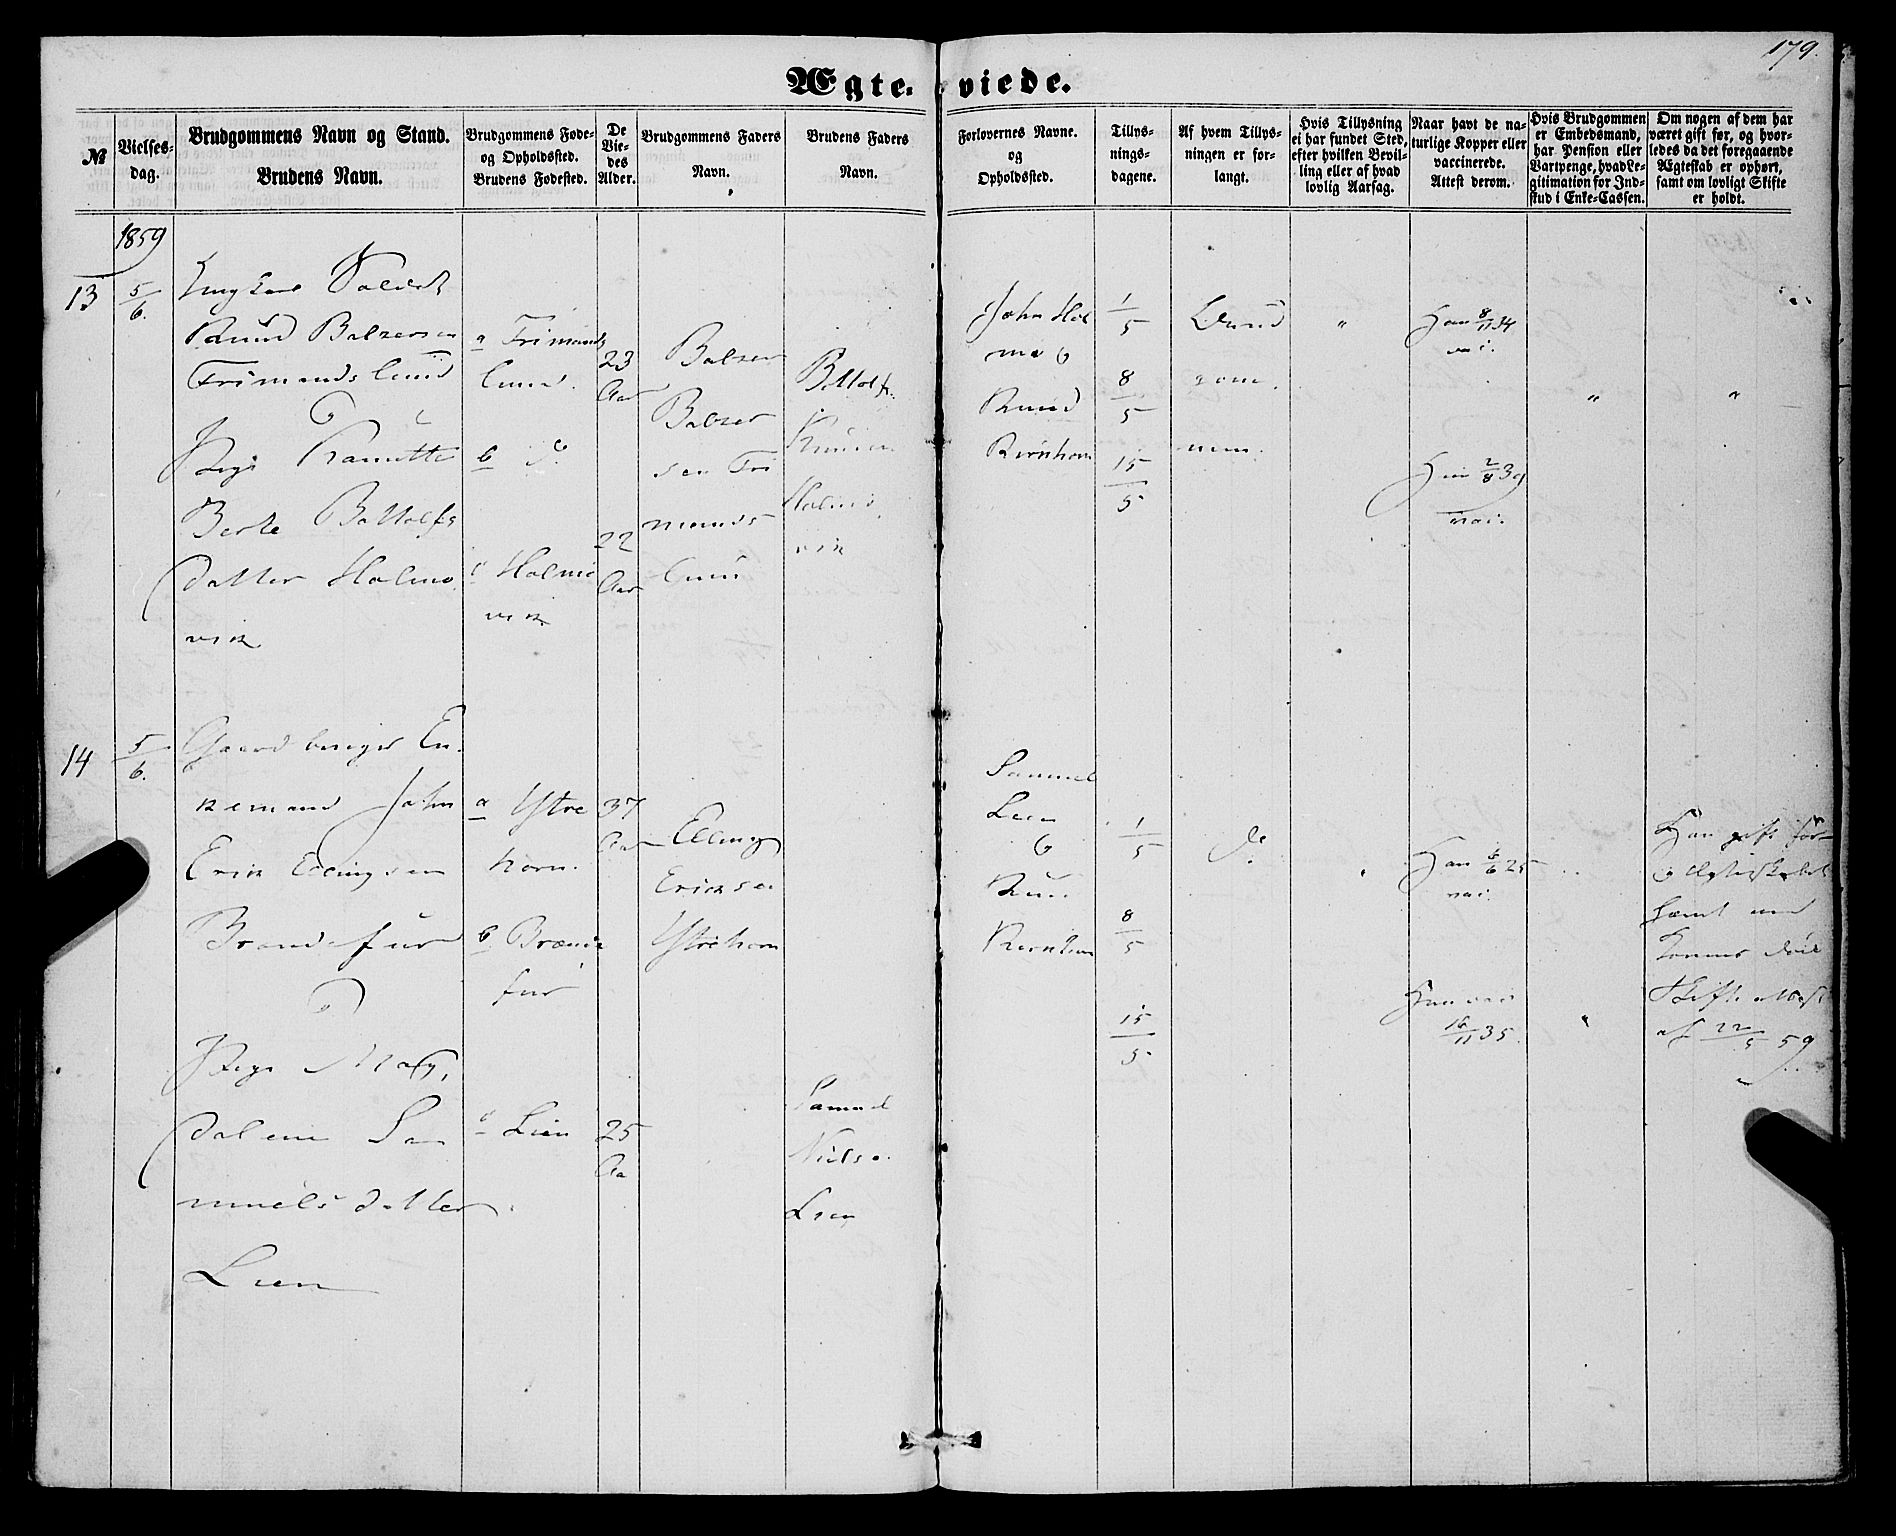 179.
Ægte-viede.
№
Vielses-
dag.
Brudgommens Navn og Stand.
Brudens Navn.
Brudgommens Føde-
og Opholdssted.
Brudens Fødested.
De
Vie-
des
Alder.
Brudgommens Faders
Navn.
Brudens Faders
Navn.
Forlovernes Navne.
og
Opholdssted.
Tillys-
nings-
dagene.
Af hvem Tillys-
ningen er for-
langt.
Hvis Tillysning
ei har fundet Sted,
efter hvilken Bevil-
ling eller af hvad
lovlig Aarsag.
Naar havt de na-
turlige Kopper eller
vaccinerede.
Attest derom.
Hvis Brudgommen
er Embedsmand,
har Pension eller
Vartpenge, hvad Le-
gitimation for Ind-
skud i Enke-Cassen.
Om nogen af dem har
været gift før, og hvor-
ledes da det foregaaende
Ægteskab er ophørt,
samt om lovligt Skifte
er holdt.
1859
13
5/6.
Ungkarl Soldat
Knud Balzersen
Trimandslund
Pige
Berte Bottolfs
datter Holme
vik
a Trimands
lund.
b do
c Holme
vik
23
Aar
22
Aar
Balzer
Balzer
sen Tri
mands
lund
Bottolf
Knudsen
Holme
vik
John Hol
me o
Knud
1/5
8/5
15/5
"
Han 8/11 34
vac.
Hun 2/8 39
vac.
"
"
14
5/6.
Gaardbruger En-
kemand John
Erik Ellingsen
Brandsfur
Pige Mag,
dalene Sa
muelsdatter
Lien
a Ystre
horn.
b
fur
c Lien
37
Aar
25
Aa
Elling
Ericksen
Ystrehorn
Samuel
Nielse.
Lien
Samuel
Lien
o
1/5
8/5
15/5
do
Han 25
vac.
Hun vac
35.
"
Han gift før
Ægteskabet
hævet ved
Konens Død
Skifte Attest
af 22/5 59